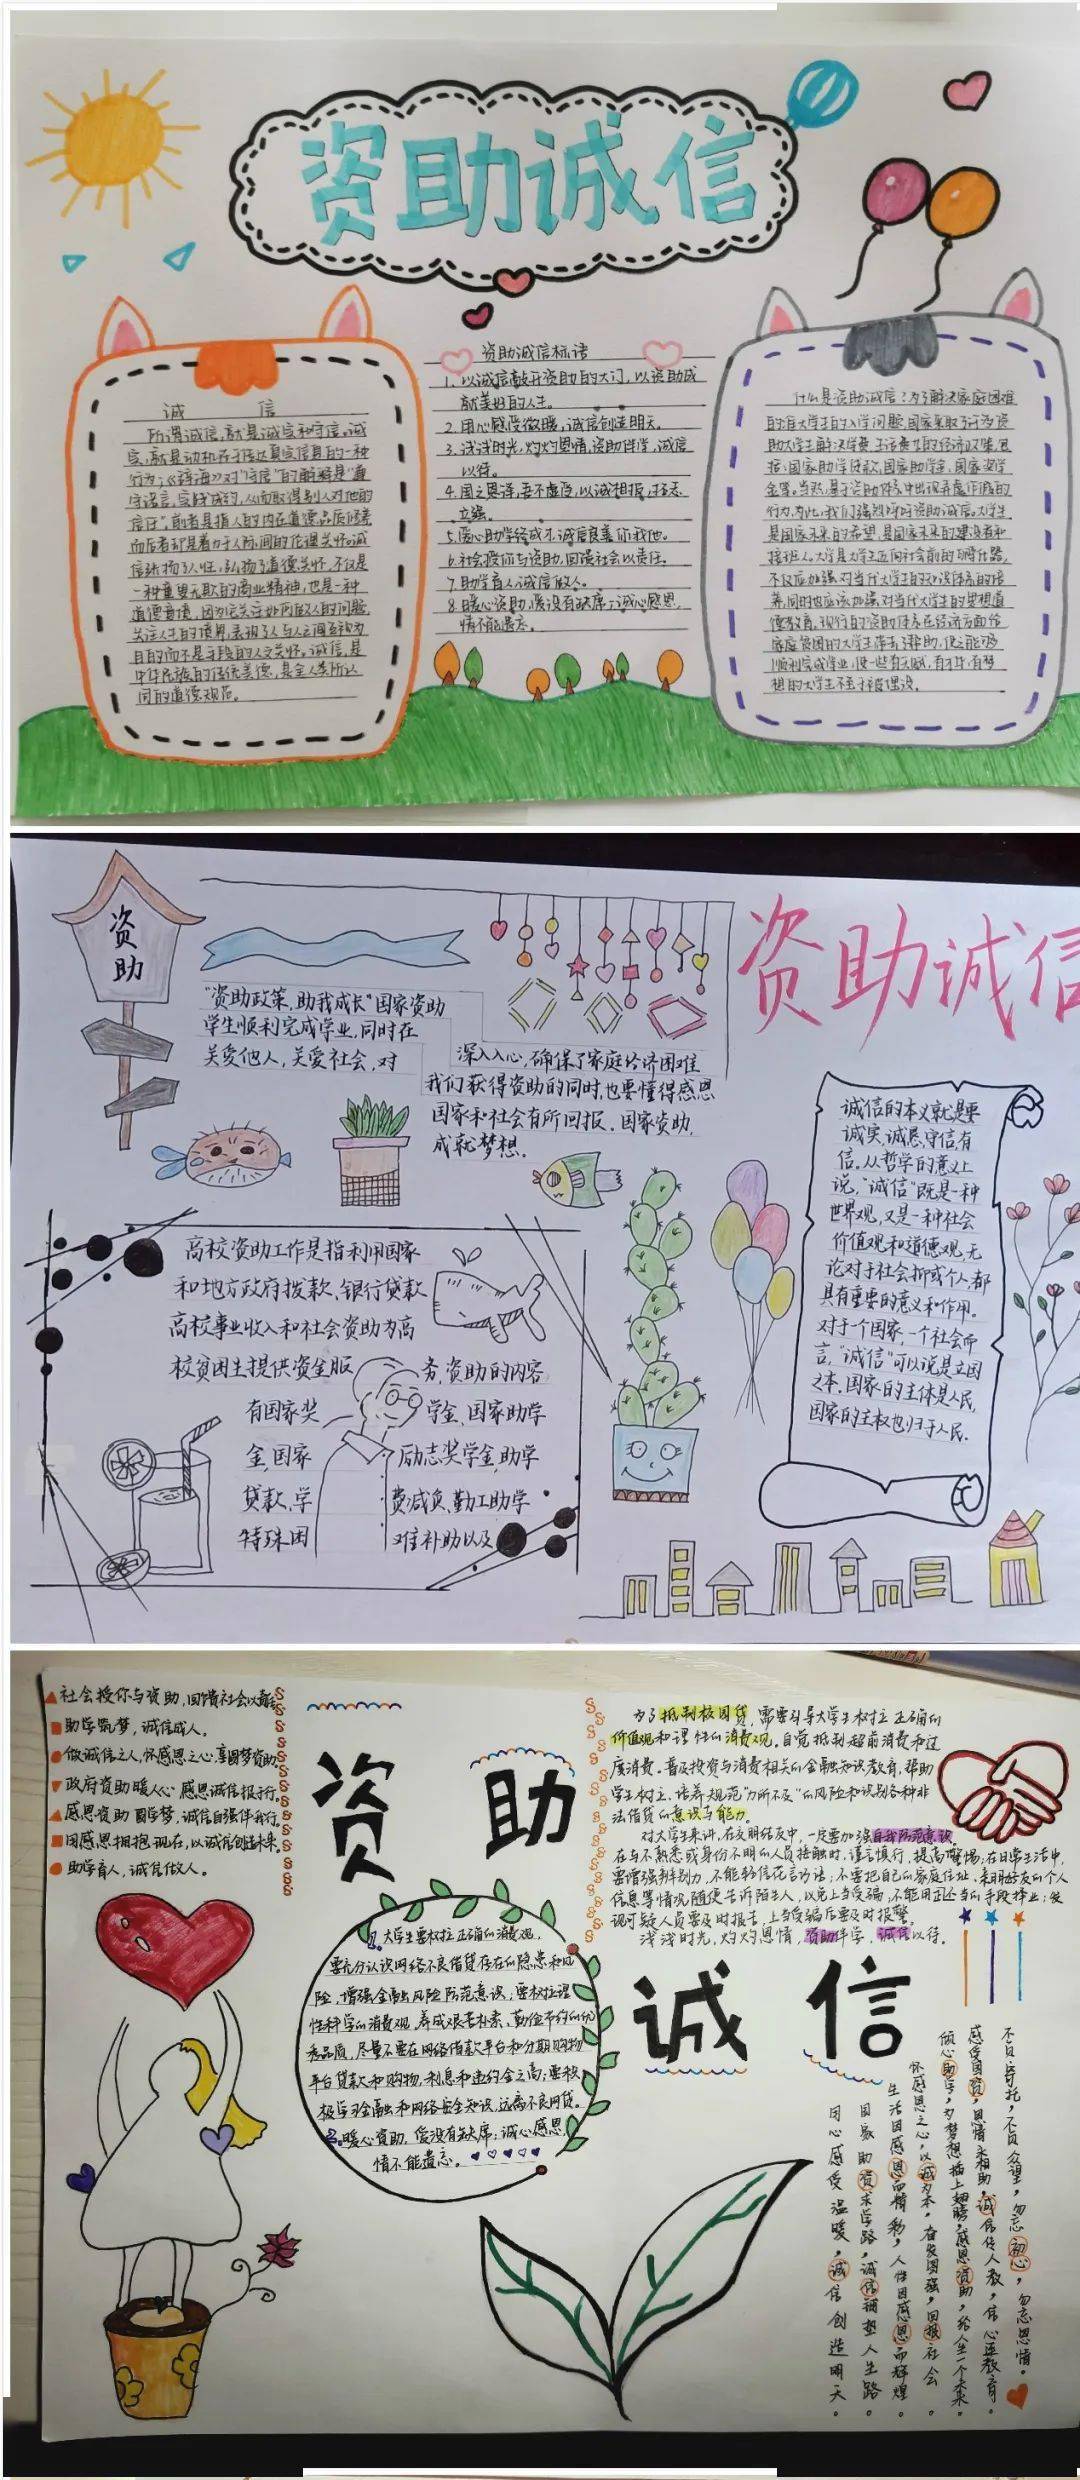 资助诚信
诚 信
所谓诚信,就是诚实和守信。诚
实,就是动机在于传达真实信息的一种
行为;《辞海》对“守信”的解释是“遵
守诺言,实践成约,从而取得别人对他的
信任”。前者是指人的内在道德品质修养
而后者却是着力于人际间的伦理关怀。诚
一种童叟无欺的商业精神,也是一种
目的而不是手段的人文关怀。诚信,是
中华民族的传统美德,是全人类所认
同的道德观念。
资助诚信标语
1.以诚信敲开资助的大门,以资助成
就美好的人生。
2.用心感受微暖,诚信创造明天。
3.浅浅时光,灼灼恩情,资助伴学,诚信
以待。
4.国之恩泽,要不虚度,以诚相报,
立强。
6.社会授你与资助,回馈社会以责任。
7.助学育人,诚信做人。
8.暖心资助,爱没有缺席;诚心感恩,
情不能遗忘。
什么是资助诚信:为了解决家庭困难
的在大学生的入学问题,国家采取了许多资
助大学生解决学费、生活费上的经济政策,包
括:国家助学贷款,国家助学金,国家奖学
金等。当然,基于资助体系中出现弄虚作假的
行为,为此,我们强烈呼吁资助诚信。大学生
是国家未来的希望,是国家未来的建设者和
不仅应加强对当代大学生的知识体系的培
养,同时也应该加强对当代大学生的思想道
德教育,现行的资助体系在经济方面给
家庭贫困的大学生带去了帮助,使之能够
顺利完成学业,使一些有天赋,有才华,有梦
想的大学生不至于被埋没。
资助
资助诚信
“资助政策,助我成长”国家资助
学生顺利完成学业,同时在
关爱他人,关爱社会,对
深入人心,确保了家庭经济困难
我们获得资助的同时,也要懂得感恩
国家和社会有所回报。国家资助,
成就梦想。
诚信的本义就是要
诚实,诚恳,守信,有
信。从哲学的意义上
说,“诚信”既是一种
世界观,又是一种社会
价值观和道德观,无
论对于社会抑或个人,都
具有重要的意义和作用。
对于一个国家,一个社会而
言,“诚信”可以说是立国
之本,国家的主体是人民,
国家的主权也归于人民.
高校资助工作是指利用国家
和地方政府拨款,银行贷款
高校事业收入和社会资助为高
校贫困生提供资金服 务,资助的内容
有国家奖 学金,国家助学
金,国家 励志奖学金,助学
贷款,学 费减负,勤工助学
特殊困 难补助以及
社会授你与资助,回馈社会以责任
助学筑梦,诚信成人。
做诚信之人,怀感恩之心,享圆梦资助。
政府资助暖人心 感恩诚信报于行。
感恩资助 圆学梦,诚信自强伴我行。
用感恩拥抱现在,以诚信创造未来。
助学育人,诚信做人。
资 助
为了抵制校园贷,需要引导大学生树立正确的
价值观和理性的消费观。自觉抵制超前消费和过
度消费。普及投资与消费相关的金融知识教育,帮助
学生树立、培养规范“力所不及”的风险和识别各种非
法借贷的意识与能力。
对大学生来讲,在交朋结友中,一定要加强自我防范意识。
在与不熟悉或身份不明的人员接触时,谨言慎行,提高警惕;在日常生活中,
要增强辨别力,不能轻信花言巧语;不要把自己的家庭住址、亲朋好友的个人
信息等情况随便告诉陌生人,以免上当受骗;不能用正还当的手段择业;发
现可疑人员要及时报告,上当受骗后要及时报警。
浅浅时光,灼灼恩情,资助伴学,诚信以待。
1.大学生要树立正确的消费观,
要充分认识网络不良借贷存在的隐患和风
险,增强金融风险防范意识;要树立理
性科学的消费观,养成艰苦朴素、勤俭节约的优
秀品质,尽量不要在网络借款平台和分期购物
平台贷款和购物,利息和违约金之高;要积
极学习金融和网络安全知识,远离不良网贷。
2.暖心资助,爱没有缺席;诚心感恩,
情不能遗忘。
诚 信
不负寄托,不负众望,勿忘初心,勿忘恩情。
感受国资,恩情永相助,诚信传人教,信心廷教育。
倾心助学,为梦想插上翅膀,感恩资助,给人生一个未来。
怀感恩之心,以诚为本,奋发图强,回报社会。
生活因感恩而精彩,人性因感恩而辉煌。
国家助资求学路,诚信铺垫人生路。
用心感受温暖,诚信创造明天。